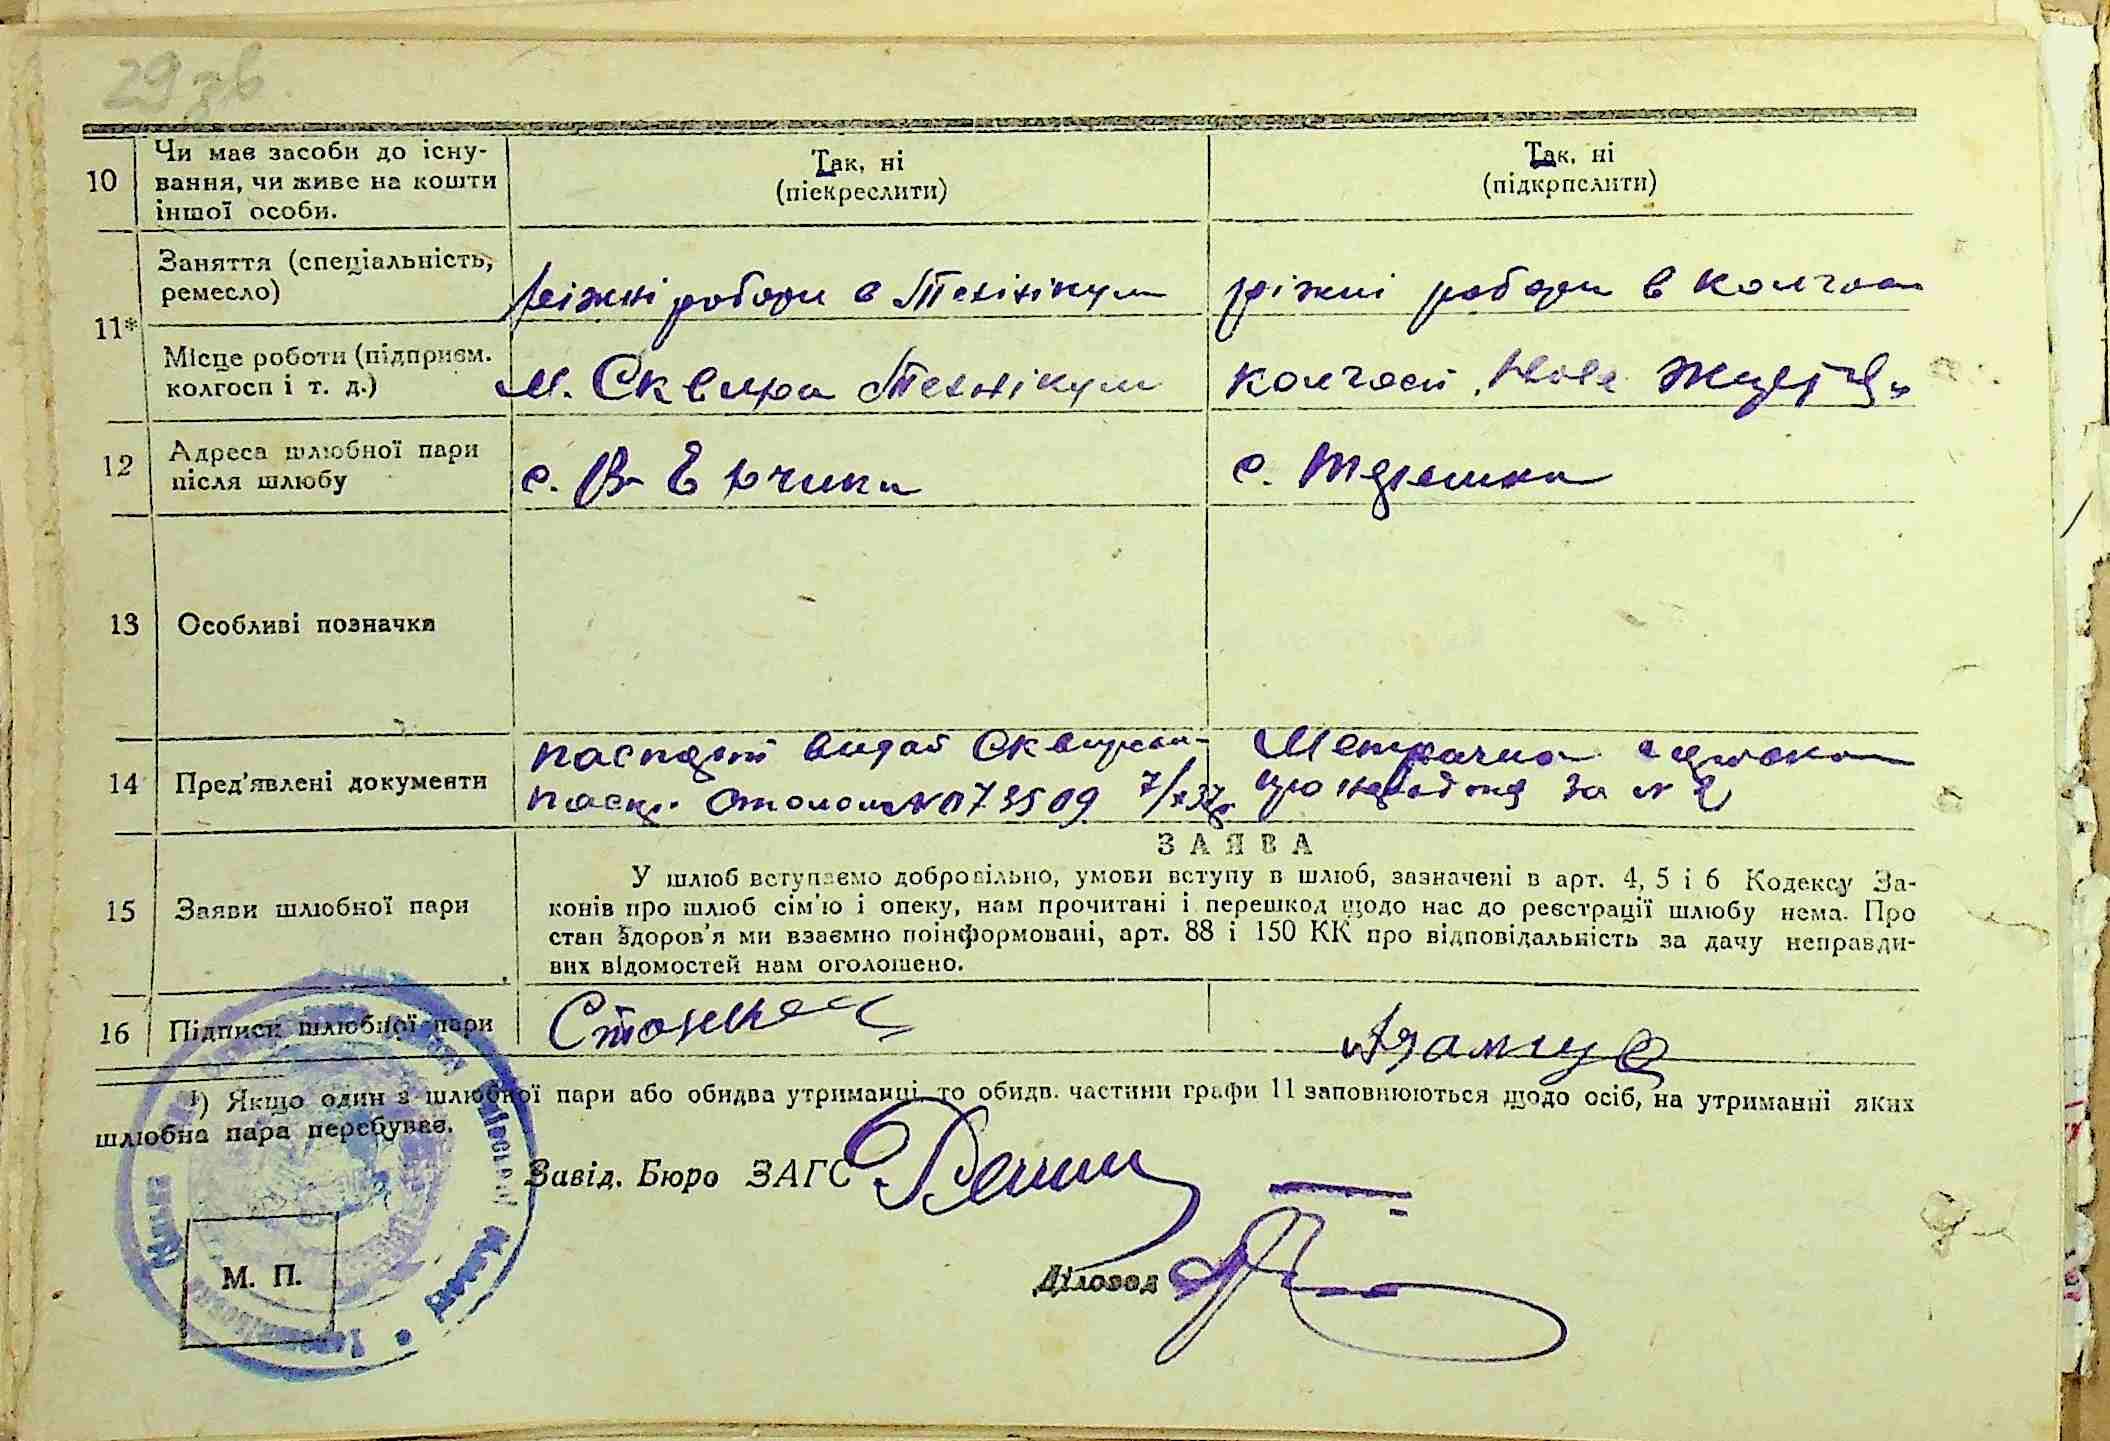 29 зв
10
Чи має засоби до існу-
вання, чи живе на кошти
іншої особи.
Так, ні
(піекреслити)
Так, ні
(підкрпслити)
11*
Заняття (спеціальність,
ремесло)
ріжні роботи в Технікум
ріжні роботи в колгоспі
Місце роботи (підприєм.
колгосп і т. д.)
м. Сквира Технікум
колгосп „Нове Життя"
12
Адреса шлюбної пари
після шлюбу
с. В-Єрчики
с. Терешки
13
Особливі позначки
14
Пред'явлені документи
паспорт видай Сквирськ-
пасп. столом № 073509 7/ 37р
Метрична
за № 2
15
Заяви шлюбної пари
ЗАЯВА
У шлюб вступаємо добровільно, умови вступу в шлюб, зазначені в арт. 4, 5 і 6 Кодексу За-
конів про шлюб сім'ю і опеку, нам прочитані і перешкод щодо нас до реєстрації шлюбу нема. Про
стан здоров'я ми взаємно поінформовані, арт. 88 і 150 КК про відповідальність за дачу неправди-
вих відомостей нам оголошено.
16
Підписи шлюбної пари
¹) Якщо один з шлюбної пари або обидва утриманці, то обидв. частини графи 11 заповнюються щодо осіб, на утриманні яких
шлюбна пара перебуває.
Завід. Бюро ЗАГС
Діловод
М. П.